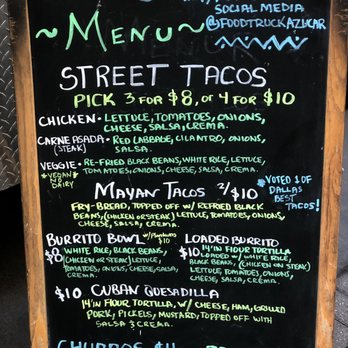 SOCIAL MEDIA
@FOODTRUCKAZUCAR
~MENU~
STREET TACOS
PICK 3 FOR $8, OR 4 FOR $10
CHICKEN - LETTUCE, TOMATOES, ONIONS,
CHEESE, SALSA, CREMA.
CARNE ASADA - RED CABBAGE, CILANTRO, ONIONS,
(STEAK) SALSA.
VEGGIE - RE-FRIED BLACK BEANS, WHITE RICE, LETTUCE,
*VEGAN* TOMATOES, ONIONS, CHEESE, SALSA, CREMA.
DAIRY
MAYAN TACOS 2/$10
*VOTED 1 OF
DALLAS
BEST
TACOS!
FRY-BREAD, TOPPED OFF W/ REFRIED BLACK
BEANS, (CHICKEN OR STEAK) LETTUCE, TOMATOES, ONIONS,
CHEESE, SALSA, CREMA.
BURRITO BOWL
$8 WHITE RICE, BLACK BEANS,
(CHICKEN OR STEAK) LETTUCE,
TOMATOES, ONIONS, CHEESE, SALSA,
CREMA.
LOADED BURRITO
$10 14"IN FLOUR TORTILLA
LOADED W/ WHITE RICE,
BLACK BEANS, (CHICKEN OR STEAK)
LETTUCE, TOMATOES, ONIONS,
CHEESE, SALSA, CREMA.
$10 CUBAN QUESADILLA
14"IN FLOUR TORTILLA, W/ CHEESE, HAM, GRILLED
PORK, PICKELS, MUSTARD, TOPPED OFF WITH
SALSA & CREMA.
CHURROS